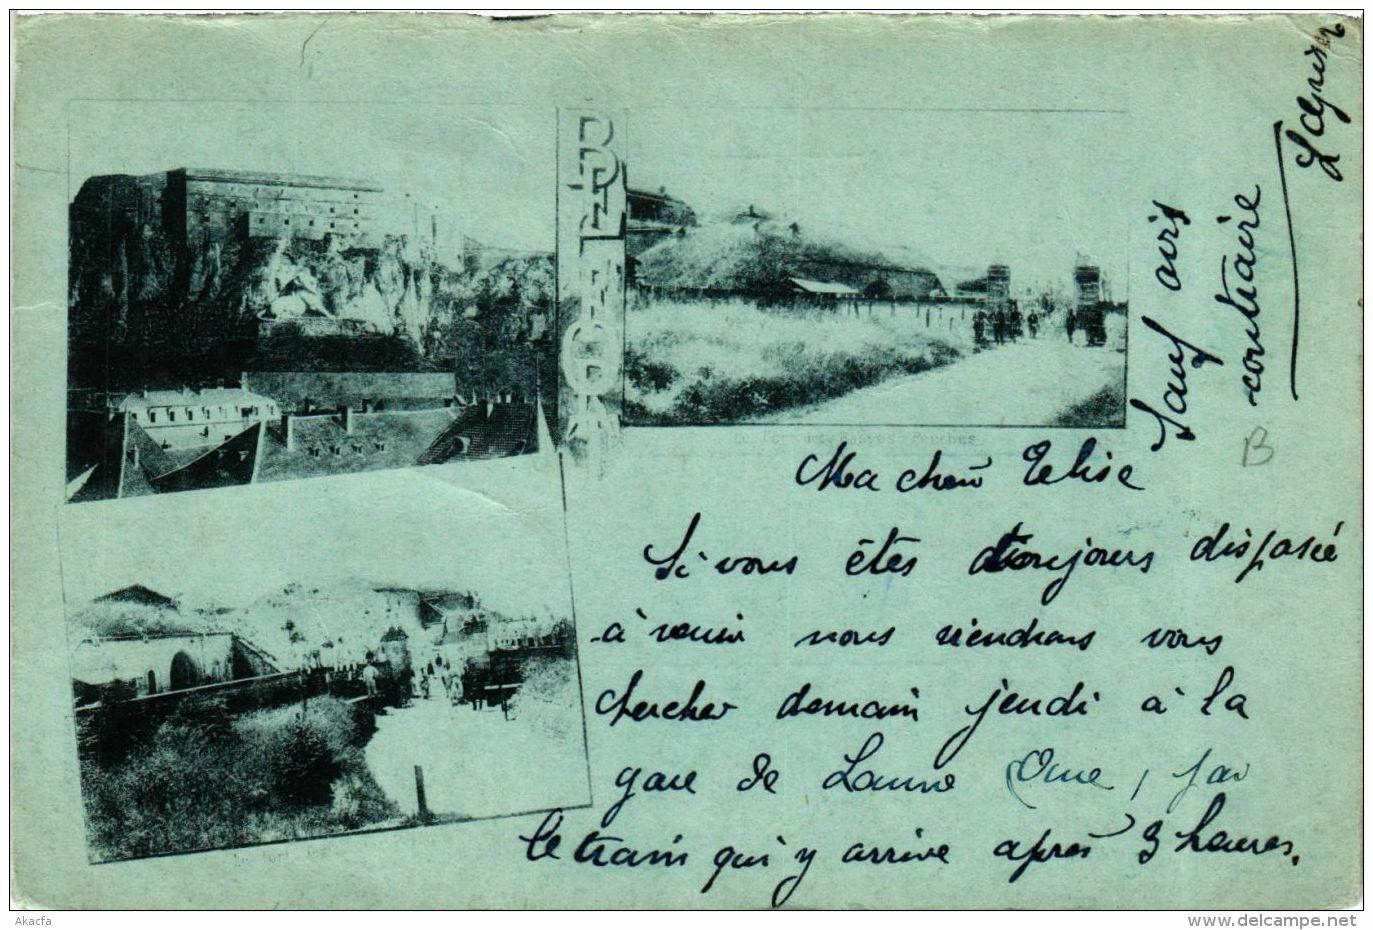 BELFORT
Le Fort des Basses Perches
Ma chère Elise
Si vous êtes toujours disposée
à venir nous viendrons vous
chercher demain jeudi à la
gare de Lanne Orne, par
le train qui y arrive après 3 heures.
Sauf avis
contraire
B
Akacfa
www.delcampe.net